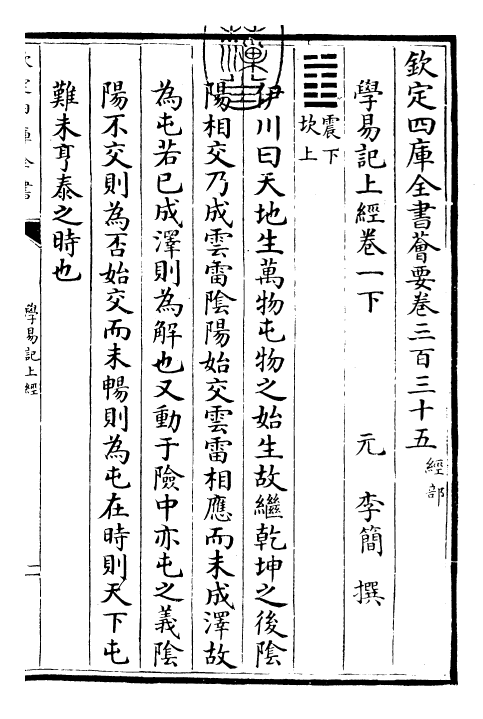 欽定四庫全書薈要卷三百三十五 經部
學易記上經卷一下
元 李簡 撰
䷂ 震下 坎上
伊川曰天地生萬物屯物之始生故繼乾坤之後陰
陽相交乃成雲雷陰陽始交雲雷相應而未成澤故
為屯若已成澤則為解也又動于險中亦屯之義陰
陽不交則為否始交而未暢則為屯在時則天下屯
難未亨泰之時也
欽定四庫全書
學易記上經